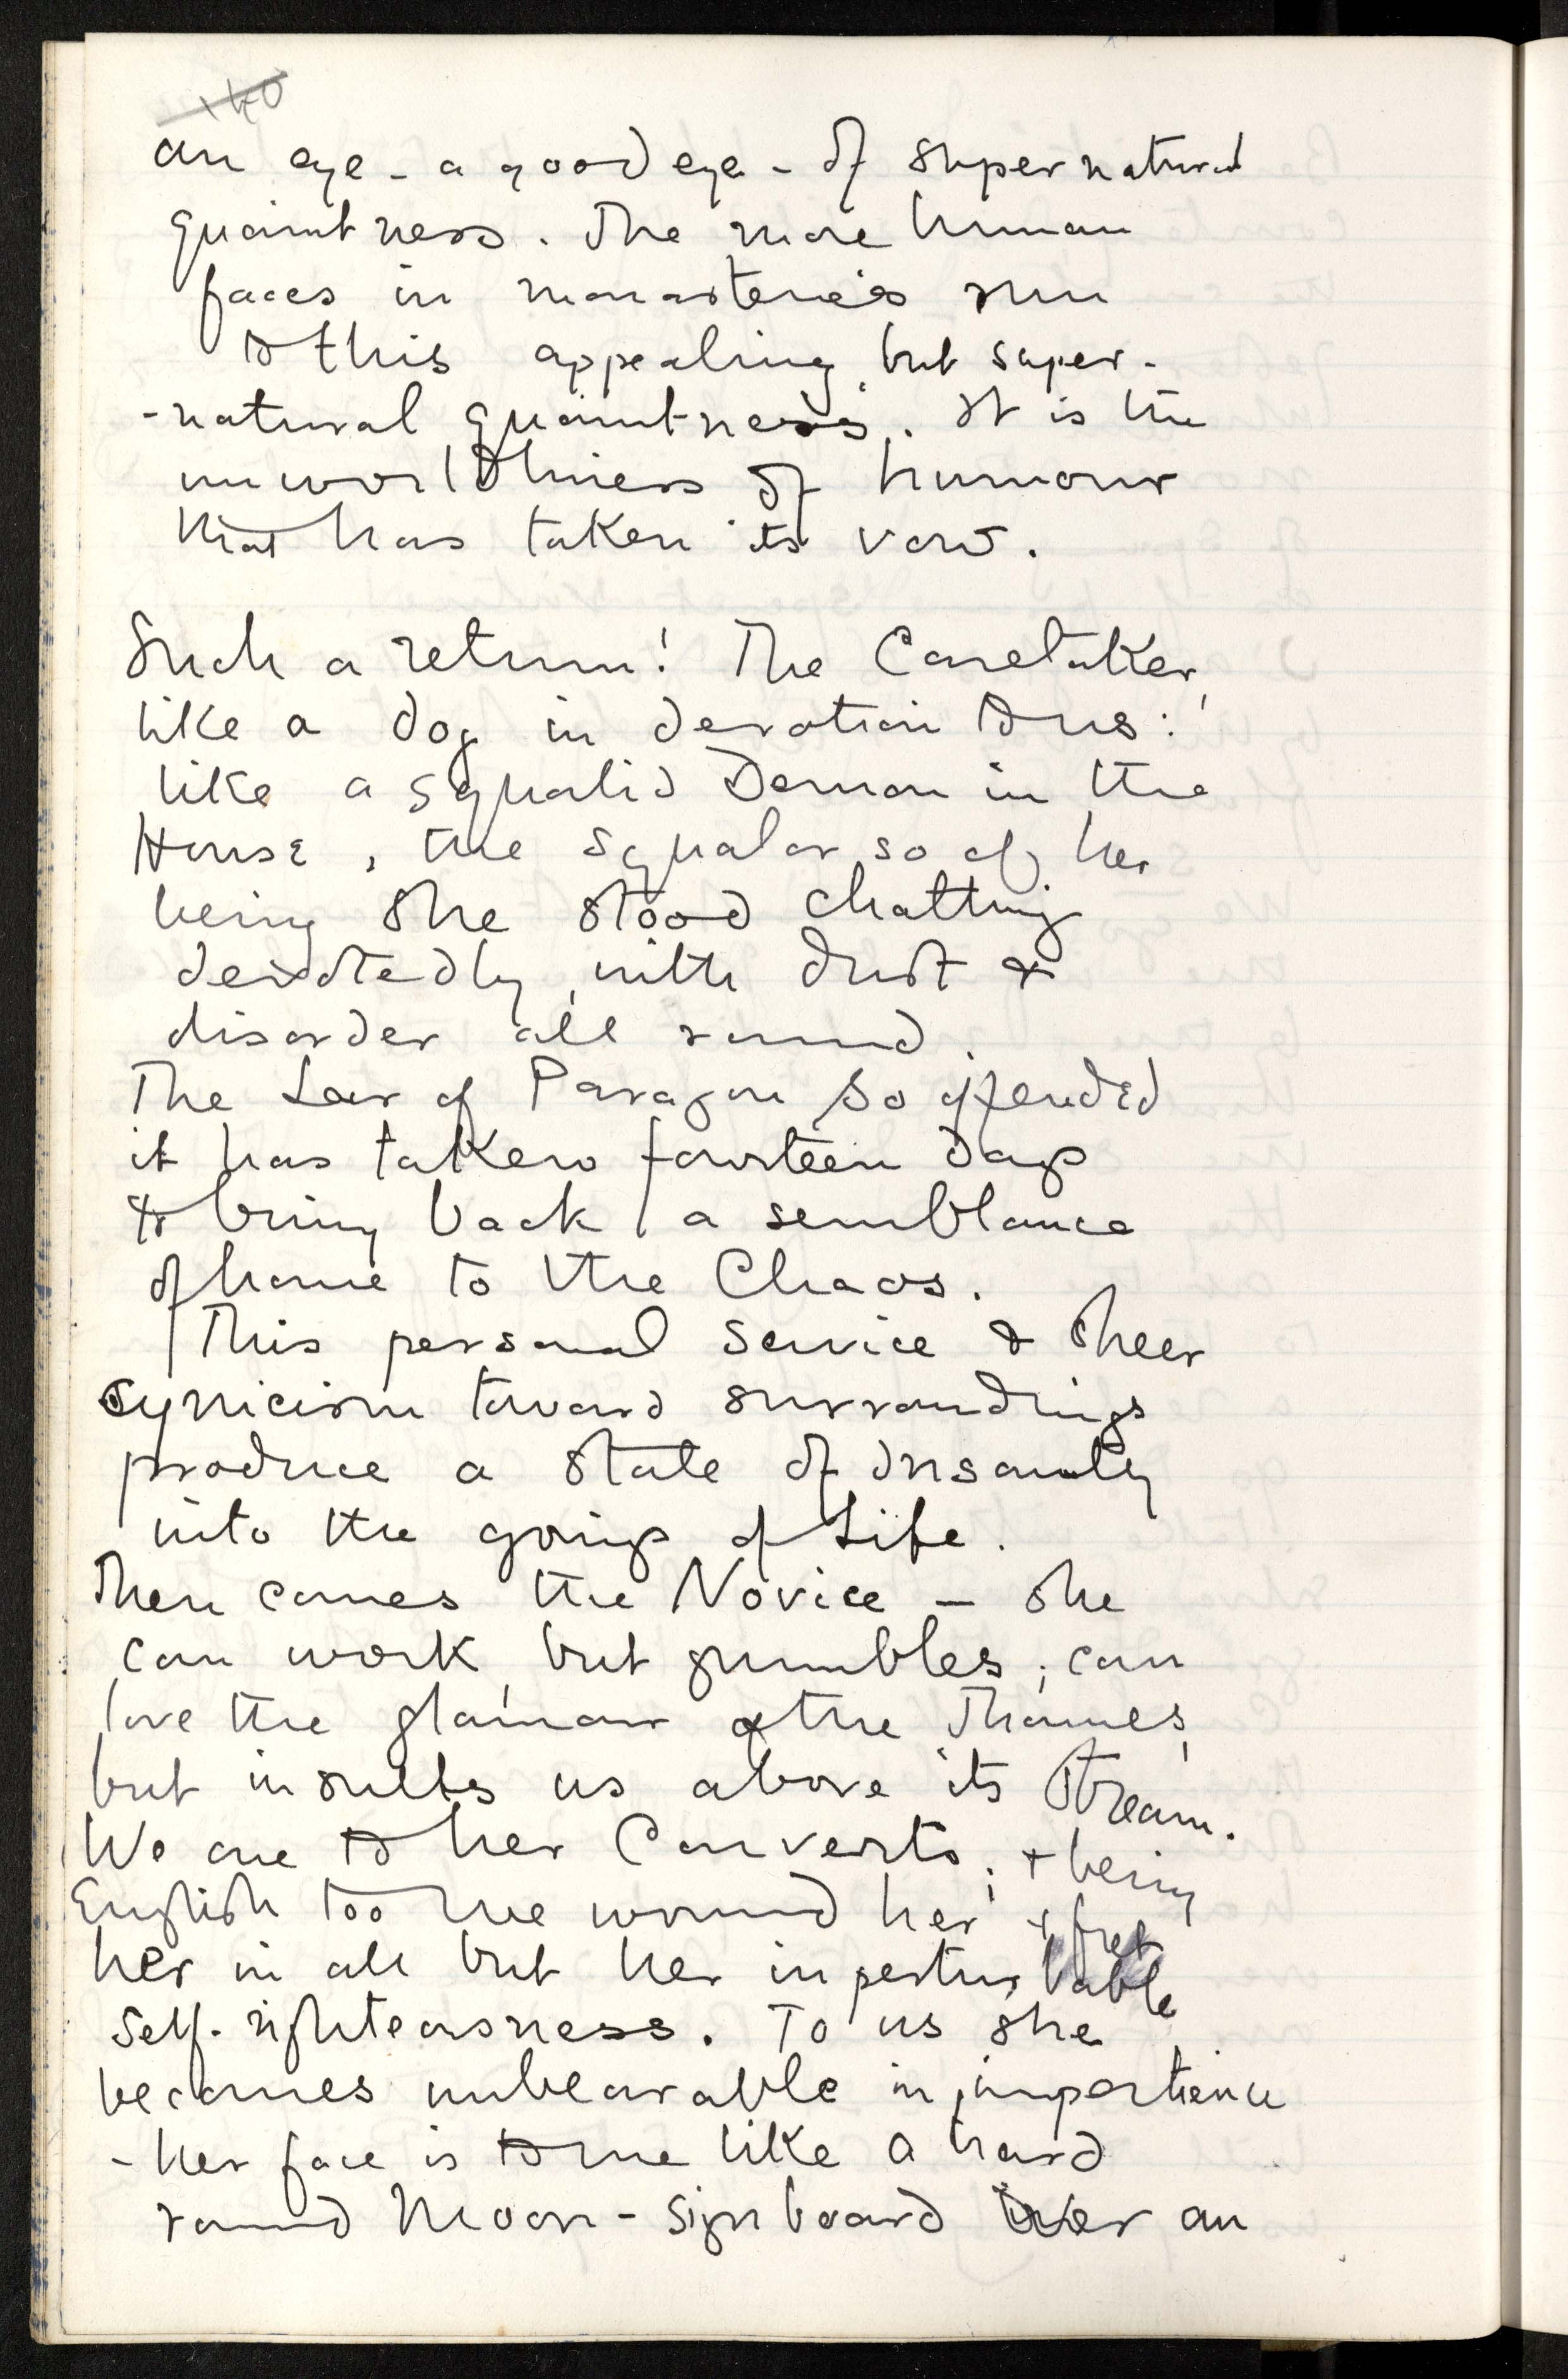 140
an eye - a good eye - of supernatural
quaintness. The more human
faces in monasteries run
to this appealing, but super-
-natural quaintness. It is the
unworldliness of humour
that has taken its vow.
Such a return! The Caretaker,
like a dog in devotion to us:
like a squalid Demon in the
House, the squalor so of her
being she stood chatting
devotedly, with dust &
disorder all round.
The Lar of Paragon so offended
it has taken fourteen days
to bring back a semblance
of home to the Chaos.
This personal service & sheer
cynicism toward surroundings
produce a state of insanity
into the goings of Life.
Then comes the Novice — she
can work, but grumbles; can
love the glamour of the Thames,
but insults us above its stream.
We are to her Converts; & being
English too we wound her & fret
her in all but her inperturbable
self-righteousness. To us she
becomes unbearable in impertience
- her face is to me like a hard
round Moon-signboard over an